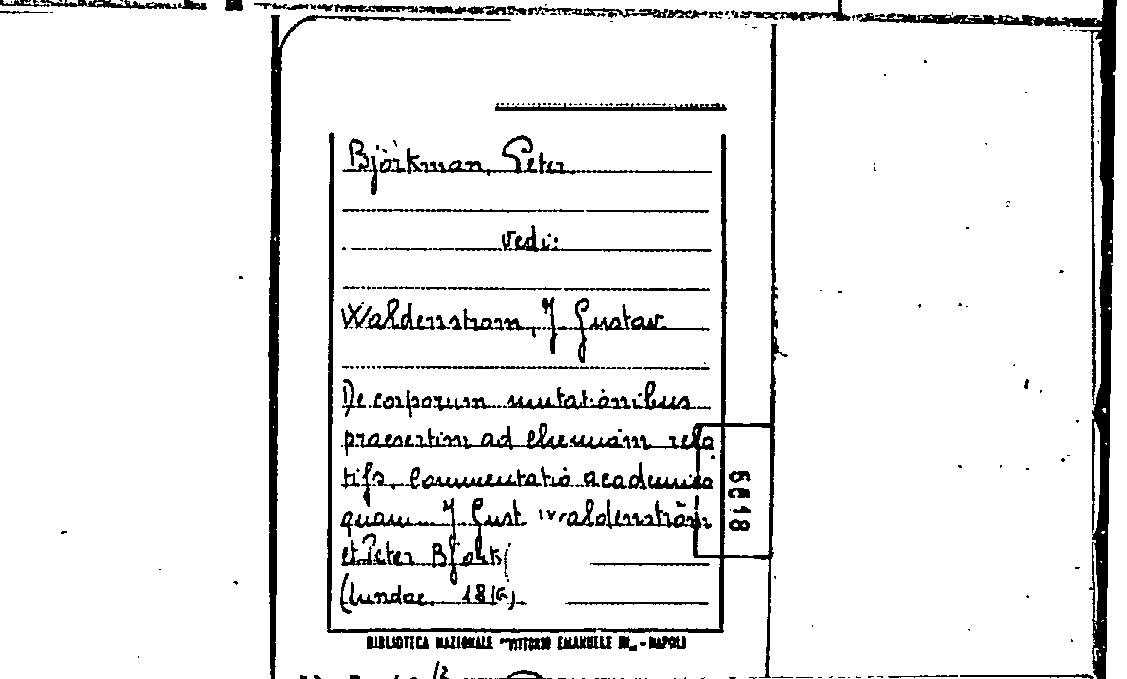 Björkman, Peter
vedi:
Waldenstrom, J. Gustav.
De corporum mutationibus
praesertim ad chemiam rela
tifs. Commentatio academica
quam J. Gust Waldenström
et Peter Bjork(
(Lundae. 1816)
5618
BIBLIOTECA NAZIONALE "VITTORIO EMANUELE III" - NAPOLI